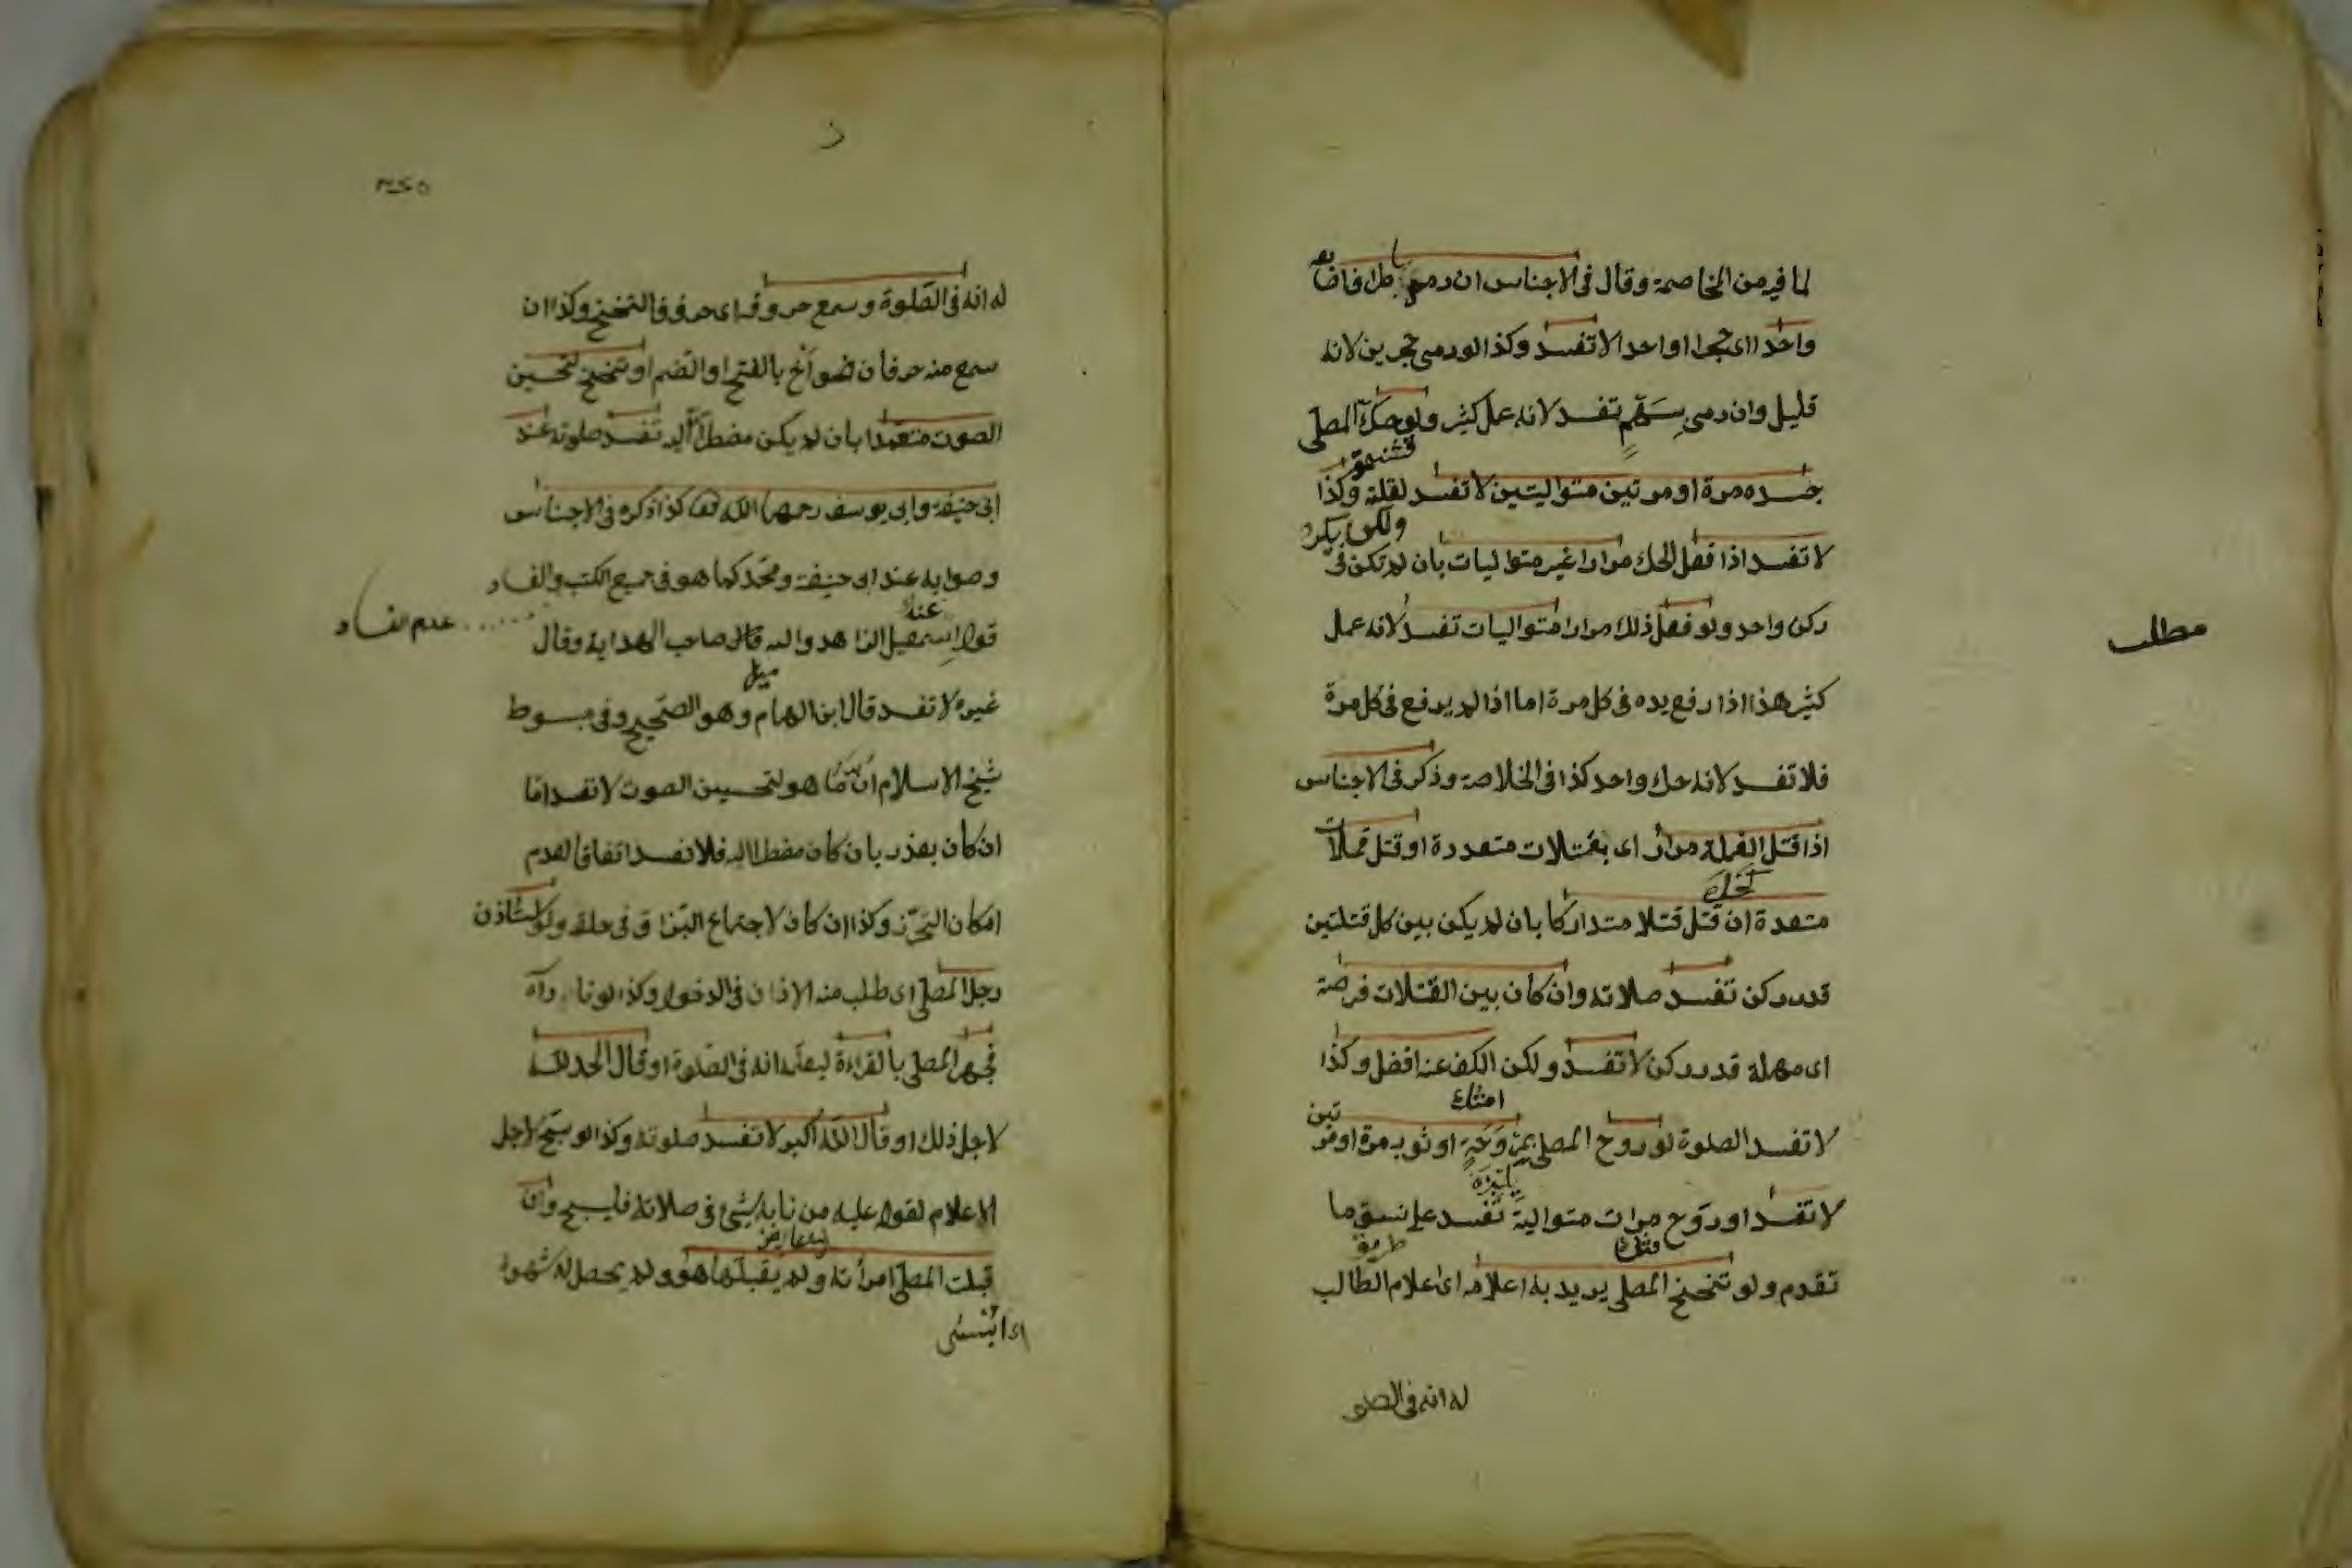 لما فيه من المخاصمة وقال في الاجناس ان رمى طائرا
واحدا اى حجرا واحدا لا تفسد وكذا لو رمى حجرين لانه
قليل وان رمى سهم تفسد لانه عمل كثير ولو حك المصلى
جسده مرة او مرتين متواليتين لا تفسد لقلته وكذا
لا تفسد اذا فعل الحك مرارا غير متواليات بان لم تكن فى
ركن واحد ولو فعل ذلك مرارا متواليات تفسد لانه عمل
مطلب
كثير هذا اذا رفع يده فى كل مرة اما اذا لم يرفع فى كل مرة
فلا تفسد لانه حك واحد كذا فى الخلاصة وذكر فى الاجناس
اذا قتل القملة مرارا اى بقتلات متعددة او قتل قملات
متعددة ان قتل قتلا متداركا بان لم يكن بين كل قتلتين
قدر ركن تفسد صلاته وان كان بين القتلات فرصة
اى مهلة قدر ركن لا تفسد ولكن الكف عنه افضل وكذا
لا تفسد الصلوة لو روح المصلى بمروحة او ثوبه مرة او مرتين
لا تفسد او روح مرات متوالية تفسد على نسق ما
تقدم ولو تنحنح المصلى يريد به اعلامه اى اعلام الطالب
له انه فى الصلو
٣٤٥
له انه فى الصلوة وسمع حروفه اى حروف التنحنح وكذا ان
سمع منه حرفان نحو أخ بالفتح او الضم او تنحنح لتحسين
الصوت متعمدا بان لم يكن مضطرا اليه تفسد صلوته عند
ابى حنيفة وابى يوسف رحمهما الله تعا كذا ذكره فى الاجناس
وصوابه عند ابى حنيفة ومحمد كما هو فى جميع الكتب والفساد
عنده
قول اسمعيل الزاهد واليه مال صاحب الهداية وقال
عدم الفساد
غيره لا تفسد قال ابن الهمام وهو الصحيح وفى مبسوط
شيخ الاسلام ان كان هو لتحسين الصوت لا تفسد اما
ان كان بعذر بان كان مضطرا اليه فلا تفسد اتفاقا لعدم
امكان التحرز وكذا ان كان لاجتماع البزاق فى حلقه ولو استأذن
رجل المصلى اى طلب منه الاذن فى الدخول وكذا لو ناداه
فجهر المصلى بالقراءة ليعلم انه فى الصلوة او قال الحمد لله
لاجل ذلك او قال الله اكبر لا تفسد صلوته وكذا لو سبح لاجل
الاعلام لقوله عليه من نابه شىء فى صلاته فليسبح وان
قبلت المصلى امرأته ولم يقبلها هو ولم يحصل له شهوة